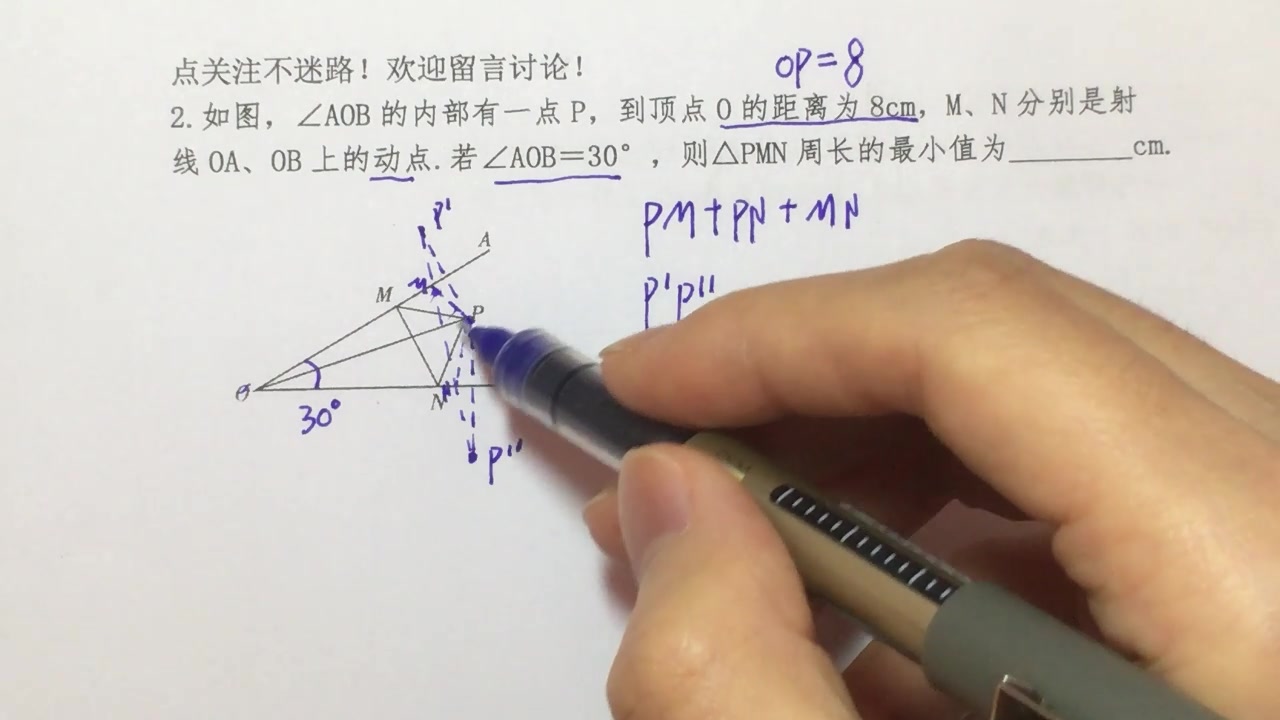 点关注不迷路！欢迎留言讨论！
OP=8
2.如图，∠AOB的内部有一点P，到顶点O的距离为8cm，M、N分别是射
线OA、OB上的动点.若∠AOB=30°，则△PMN周长的最小值为________cm.
PM+PN+MN
P'
A
P'P''
M
M
P
O
N
N
30°
P''